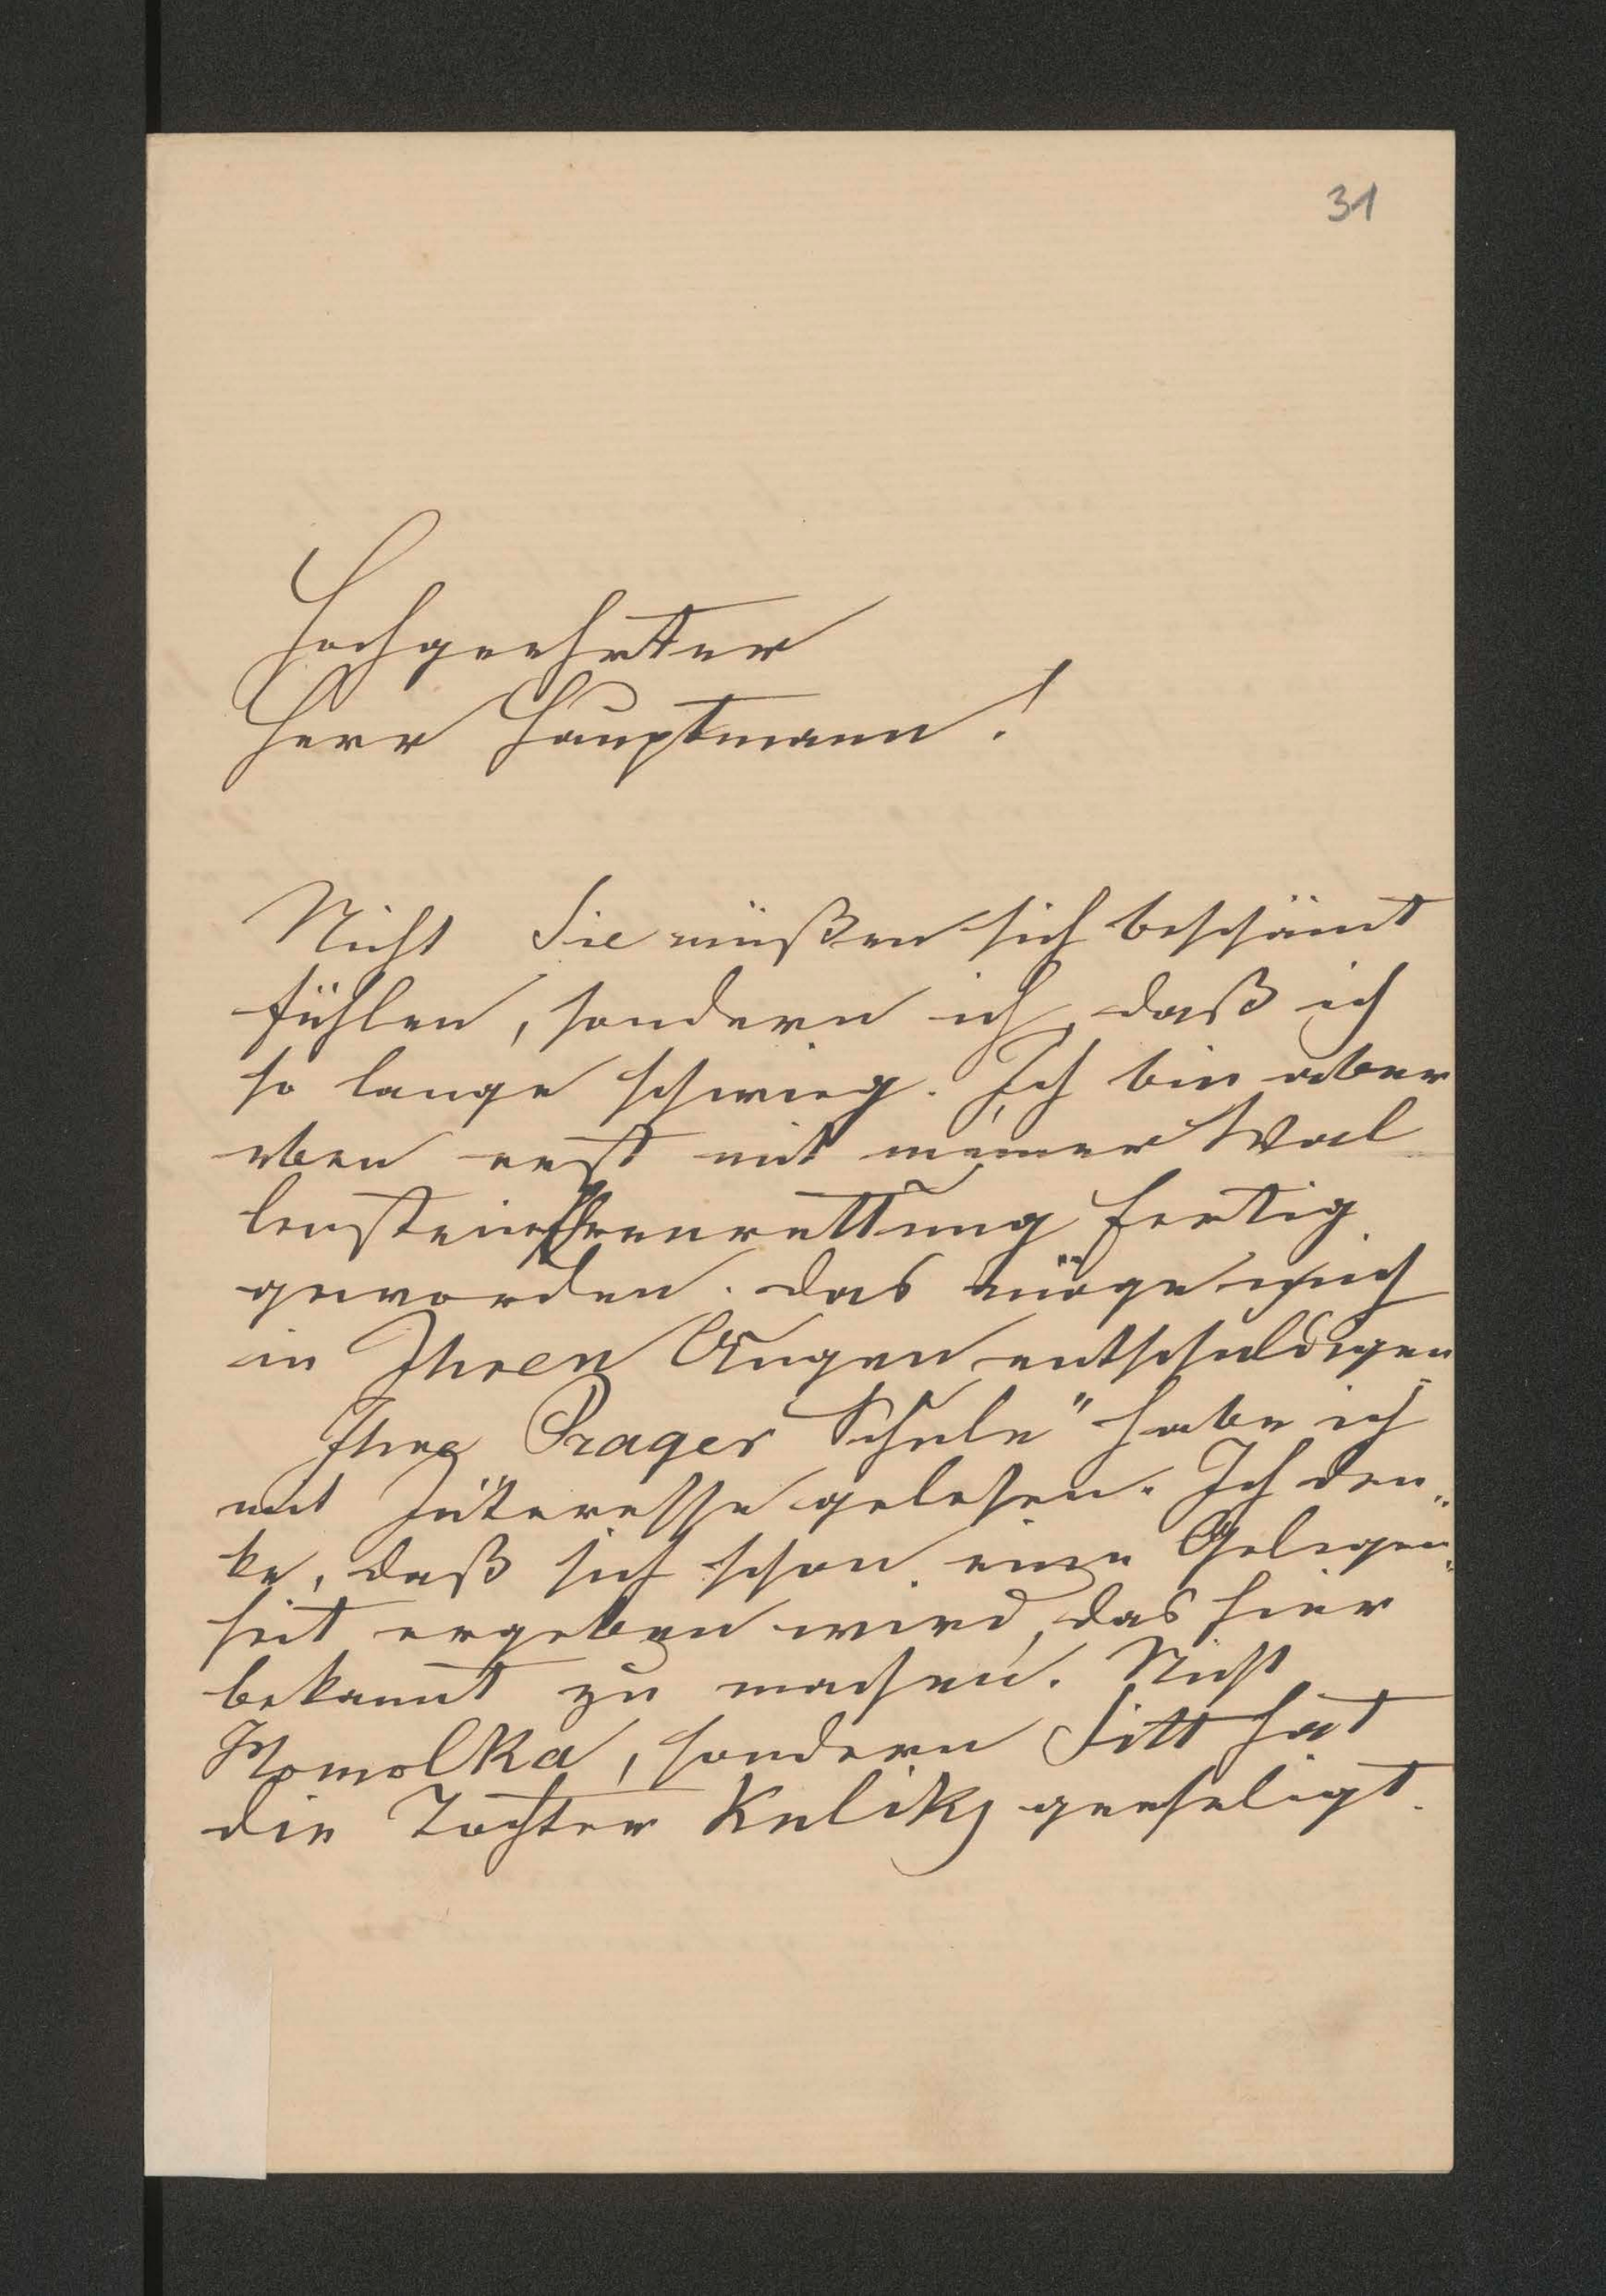 31
Hochgeehrter
Herr Hauptmann!
Nicht Sie müßen sich beschämt
fühlen, sondern ich, daß ich
so lange schwieg. Ich bin aber
eben erst mit meiner Wal
lensteinEhrenrettung fertig
geworden. Das möge mich
in Ihren Augen entschuldigen.
Ihre Prager Schule" habe ich
mit Interesse gelesen. Ich den„
ke, daß sich schon eine Gelegen„
heit ergeben wird, das hier
bekannt zu machen. Nicht
Homolka, sondern Sitt hat
die Tochter Kuliks geehligt.